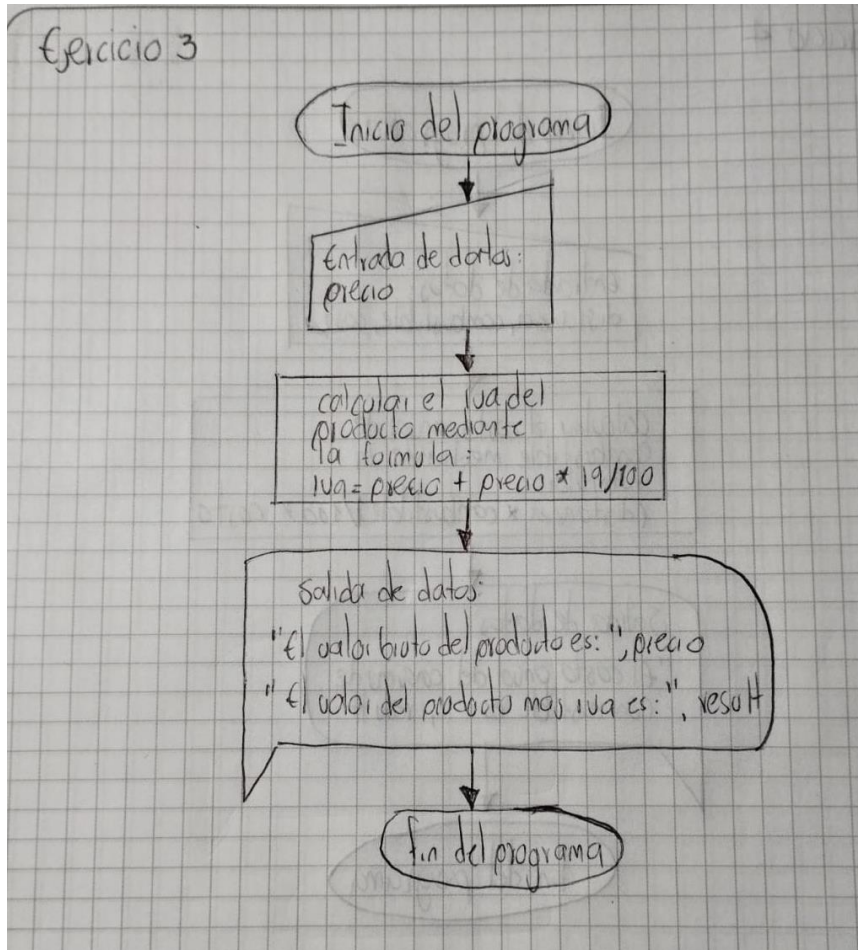 Ejercicio 3
Inicio del programa
Entrada de datos:
precio
calcular el iva del
producto mediante
la formula:
iva = precio + precio * 19/100
Salida de datos:
"El valor bruto del producto es: ", precio
"El valor del producto mas iva es: ", result
fin del programa